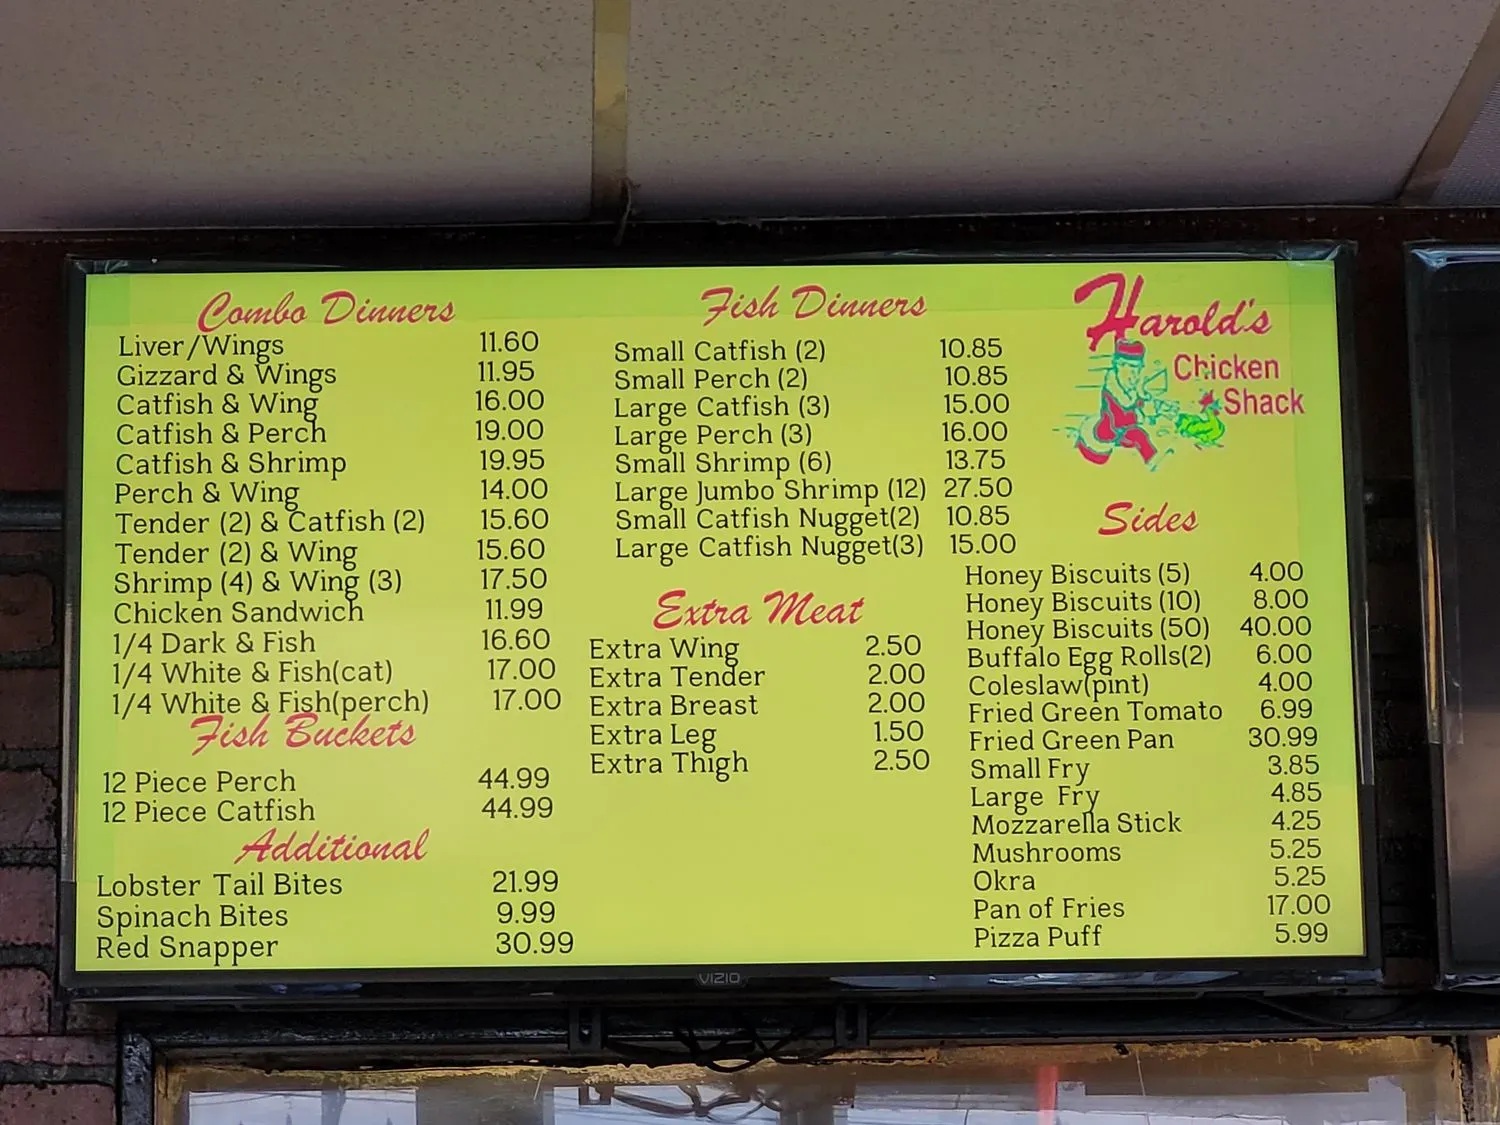 Combo Dinners
Liver/Wings 11.60
Gizzard & Wings 11.95
Catfish & Wing 16.00
Catfish & Perch 19.00
Catfish & Shrimp 19.95
Perch & Wing 14.00
Tender (2) & Catfish (2) 15.60
Tender (2) & Wing 15.60
Shrimp (4) & Wing (3) 17.50
Chicken Sandwich 11.99
1/4 Dark & Fish 16.60
1/4 White & Fish(cat) 17.00
1/4 White & Fish(perch) 17.00
Fish Buckets
12 Piece Perch 44.99
12 Piece Catfish 44.99
Additional
Lobster Tail Bites 21.99
Spinach Bites 9.99
Red Snapper 30.99
Fish Dinners
Small Catfish (2) 10.85
Small Perch (2) 10.85
Large Catfish (3) 15.00
Large Perch (3) 16.00
Small Shrimp (6) 13.75
Large Jumbo Shrimp (12) 27.50
Small Catfish Nugget(2) 10.85
Large Catfish Nugget(3) 15.00
Extra Meat
Extra Wing 2.50
Extra Tender 2.00
Extra Breast 2.00
Extra Leg 1.50
Extra Thigh 2.50
Harold's
Chicken
Shack
Sides
Honey Biscuits (5) 4.00
Honey Biscuits (10) 8.00
Honey Biscuits (50) 40.00
Buffalo Egg Rolls(2) 6.00
Coleslaw(pint) 4.00
Fried Green Tomato 6.99
Fried Green Pan 30.99
Small Fry 3.85
Large Fry 4.85
Mozzarella Stick 4.25
Mushrooms 5.25
Okra 5.25
Pan of Fries 17.00
Pizza Puff 5.99
VIZIO